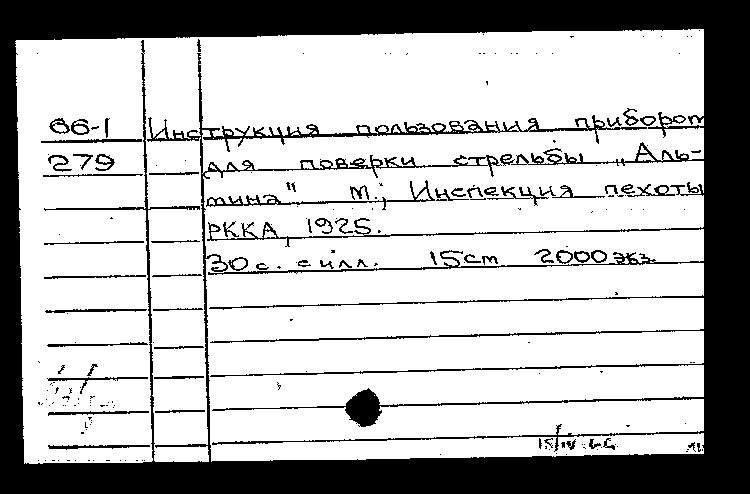 66-1 Инструкция пользования приборот
279 для поверки стрельбы „Аль-
тина". М., Инспекция пехоты
РККА, 1925.
30 с. с илл. 15 cm 2000 экз.